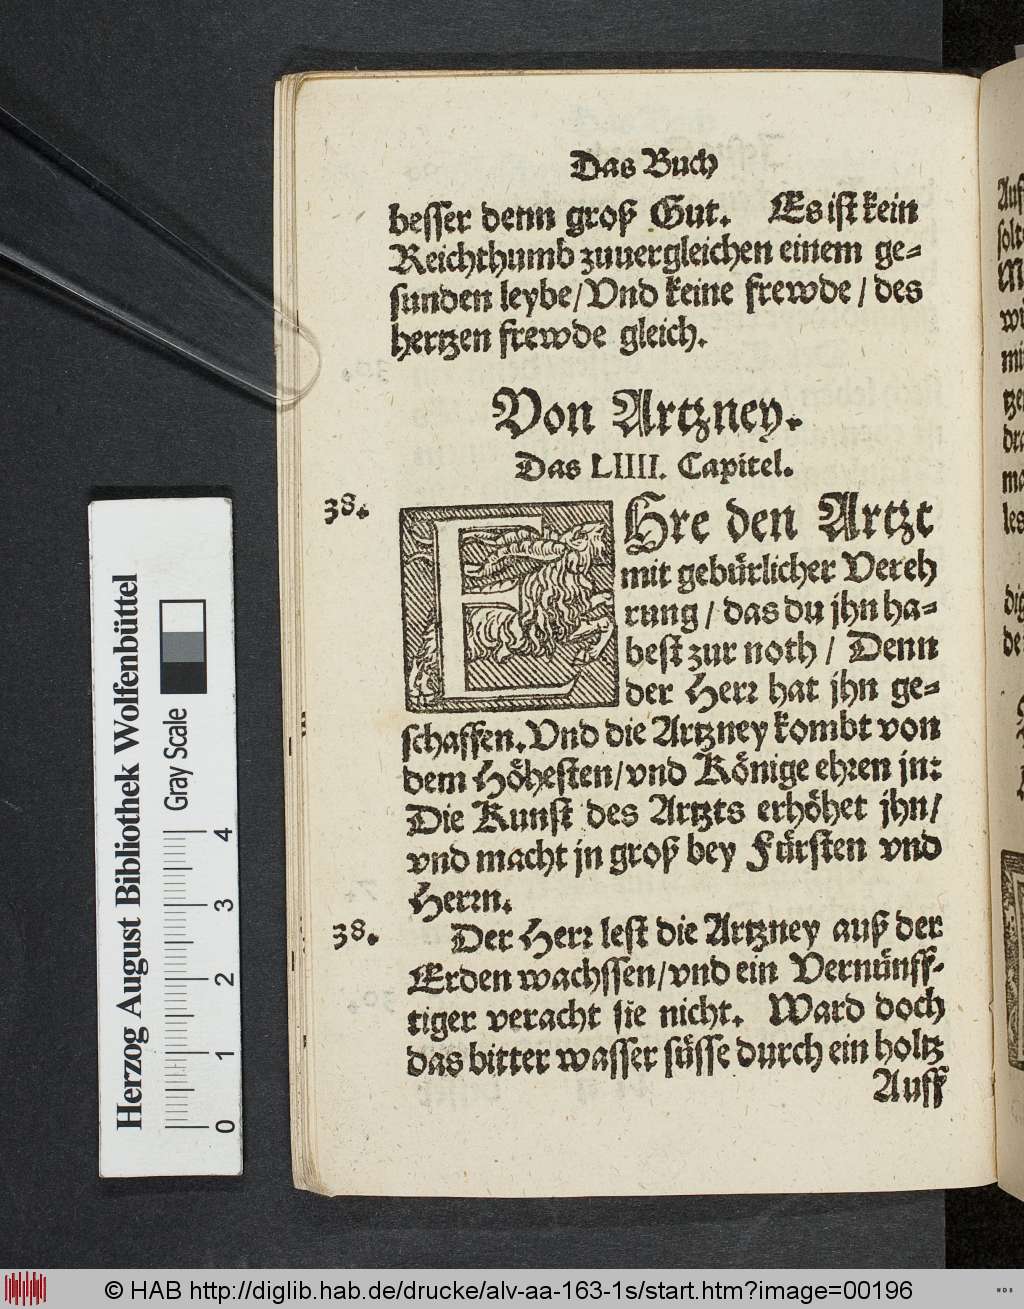 Das Buch
besser denn groß Gut. Es ist kein
Reichthumb zuuergleichen einem ge=
sunden leybe/Vnd keine frewde / des
hertzen frewde gleich.
Von Artzney.
Das LIIII. Capitel.
38.
EHre den Artzt
mit gebürlicher Vereh
rung / das du jhn ha=
best zur noth / Denn
der Herr hat jhn ge=
schaffen. Vnd die Artzney kombt von
dem Höhesten/vnd Könige ehren jn:
Die Kunst des Artzts erhöhet jhn/
vnd macht jn groß bey Fürsten vnd
Herrn.
38.
Der Herr lest die Artzney auß der
Erden wachssen/vnd ein Vernünff-
tiger veracht sie nicht. Ward doch
das bitter wasser süsse durch ein holtz
Auff
Herzog August Bibliothek Wolfenbüttel
Gray Scale
0 1 2 3 4
© HAB http://diglib.hab.de/drucke/alv-aa-163-1s/start.htm?image=00196